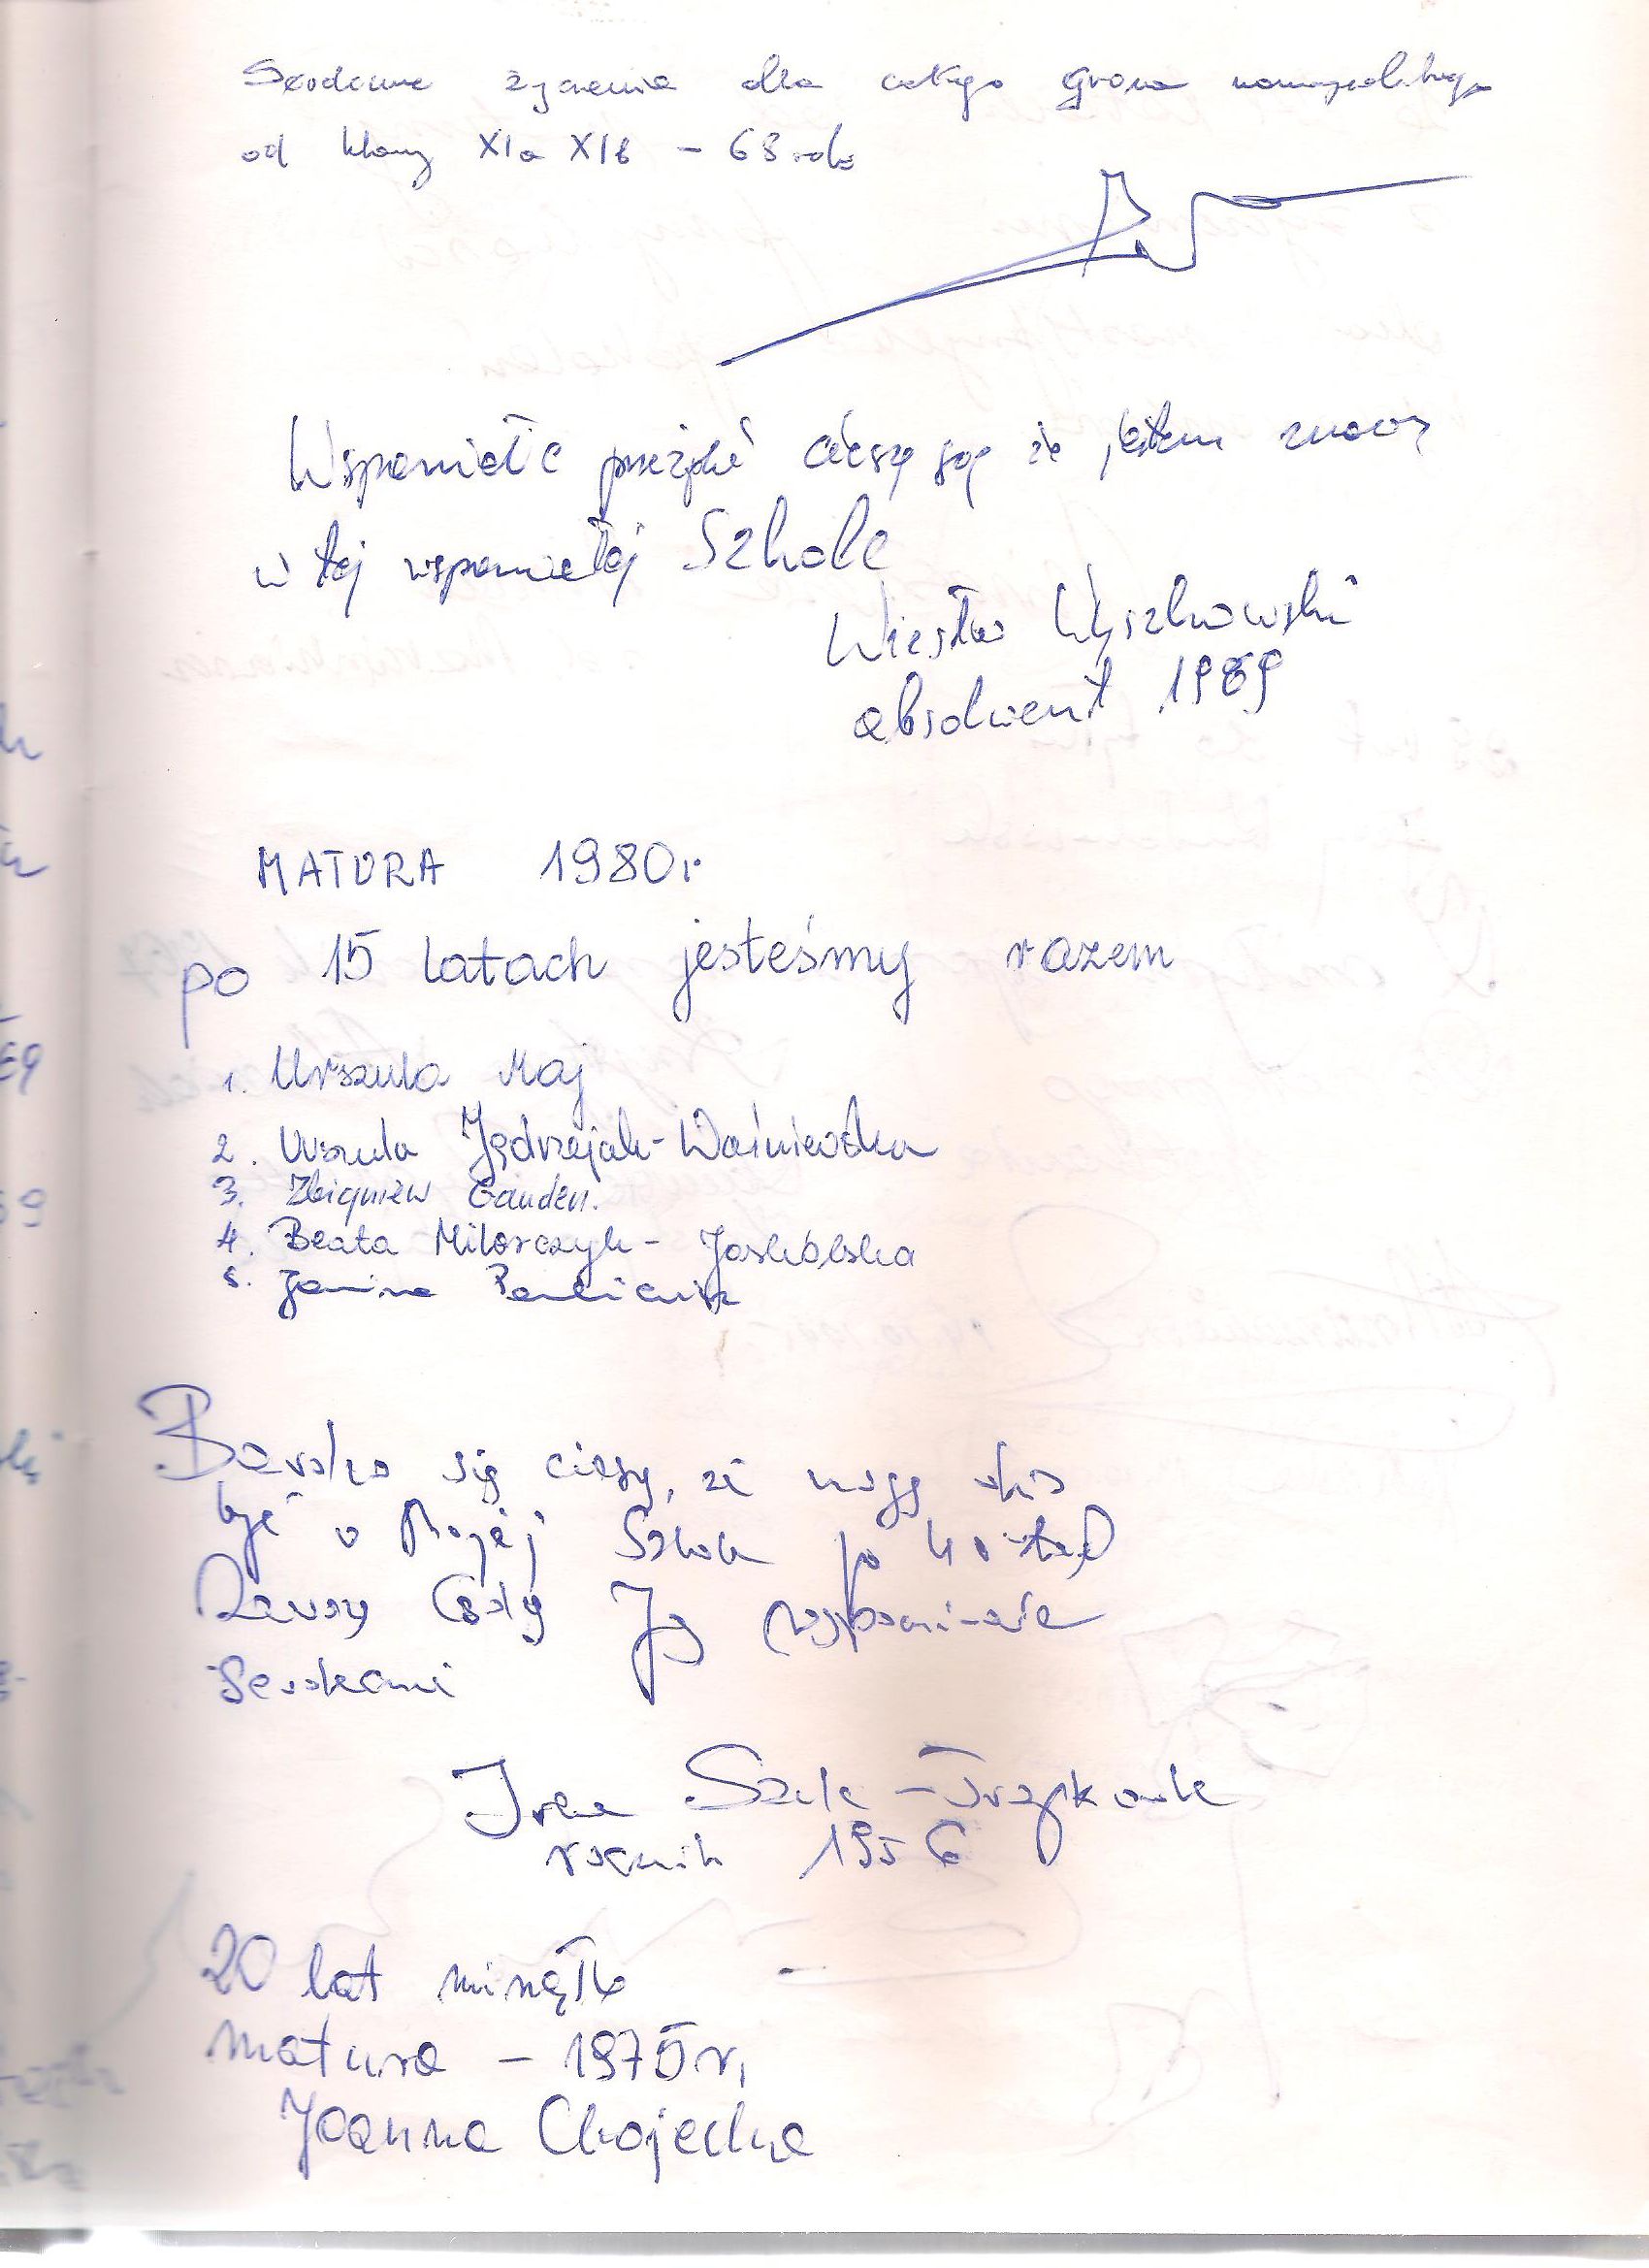 Serdeczne życzenia dla całego grona nauczycielskiego
od klasy XIa XIb - 63 roku
Wspaniałe przeżycie cieszę się że jestem znowu
w tej wspaniałej Szkole
Wiesław Wyszkowski
absolwent 1969
MATURA 1980r
po 15 latach jesteśmy razem
1. Urszula Maj
2. Urszula Jędrzejak-Waśniewska
3. Zbigniew Gauden.
4. Beata Milarczyk- Jaskólska
5. Janina
Bardzo się cieszę, że mogę
być w Mojej Szkole po 40
Zawsze będę Ją wspominała
Serdecznie
Irena
rocznik 1956
20 lat minęło
matura - 1975r,
Joanna Chojecka